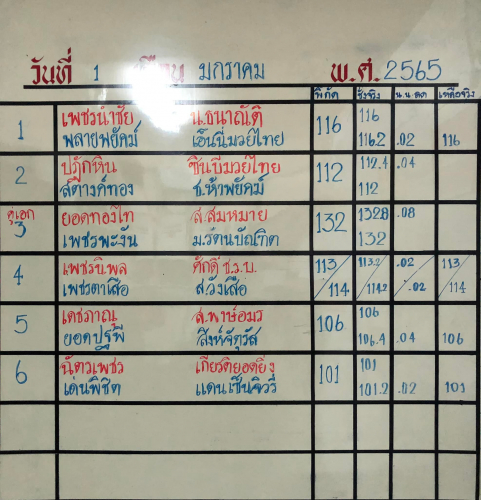 วันที่ 1 เดือน มกราคม พ.ศ. 2565
พิกัด ชั่งจริง น.น.ลด เหลือจริง
1 เพชรนำชัย น.ธนาณัติ 116 116
พลายพยัคม์ เอ็นนี่มวยไทย 116.2 .02 116
2 ปฏักหิน ซันบีมวยไทย 112 112.4 .04
สตางค์ทอง ช.ห้าพยัคม์ 112
คู่เอก 3 ยอดทองไท ส.สมหมาย 132 132.8 .08
เพชรพะงัน ม.รัตนบัณฑิต 132
4 เพชรบ.พล ศักดิ์ ช.ร.บ. 113 113.2 .02 113
เพชรตาเสือ ส.วังเสือ 114 114.2 .02 114
5 เดชภาณุ ส.พาษ์อมร 106 106
ยอดปฐพี สิงห์จัตุรัส 106.4 .04 106
6 ฉัตรเพชร เกียรติยอดยิ่ง 101 101
เด่นพิชิต แดนเซ็นจิวรี่ 101.2 .02 101